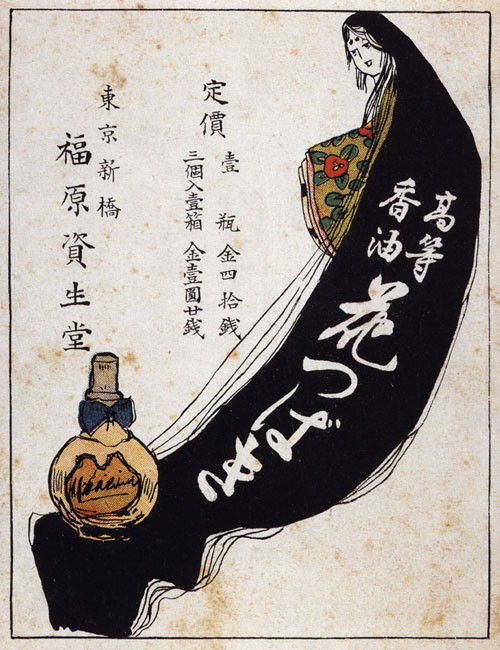 高等
香油
花つばき
定價
壹瓶金四拾銭
三個入壹箱金壹圓廿銭
東京新橋
福原資生堂